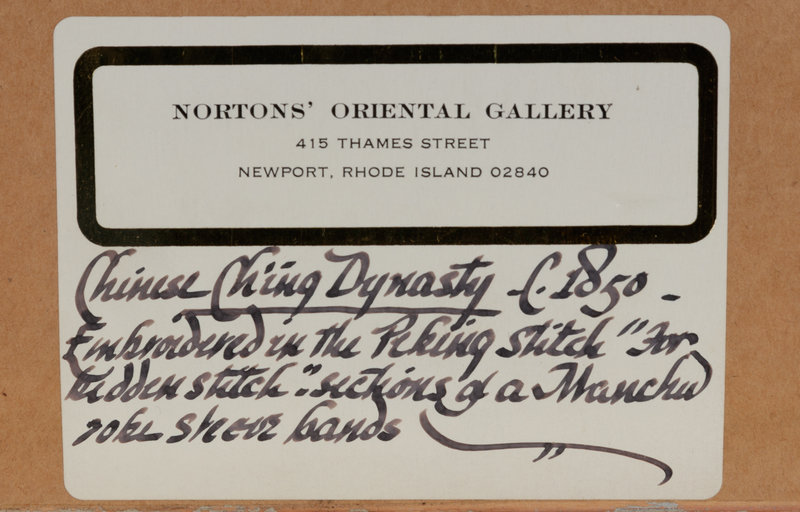 NORTONS' ORIENTAL GALLERY
415 THAMES STREET
NEWPORT, RHODE ISLAND 02840
Chinese Ch'ing Dynasty C. 1850 -
Embroidered in the Peking stitch "For
bidden stitch". sections of a Manchu
robe sleeve bands